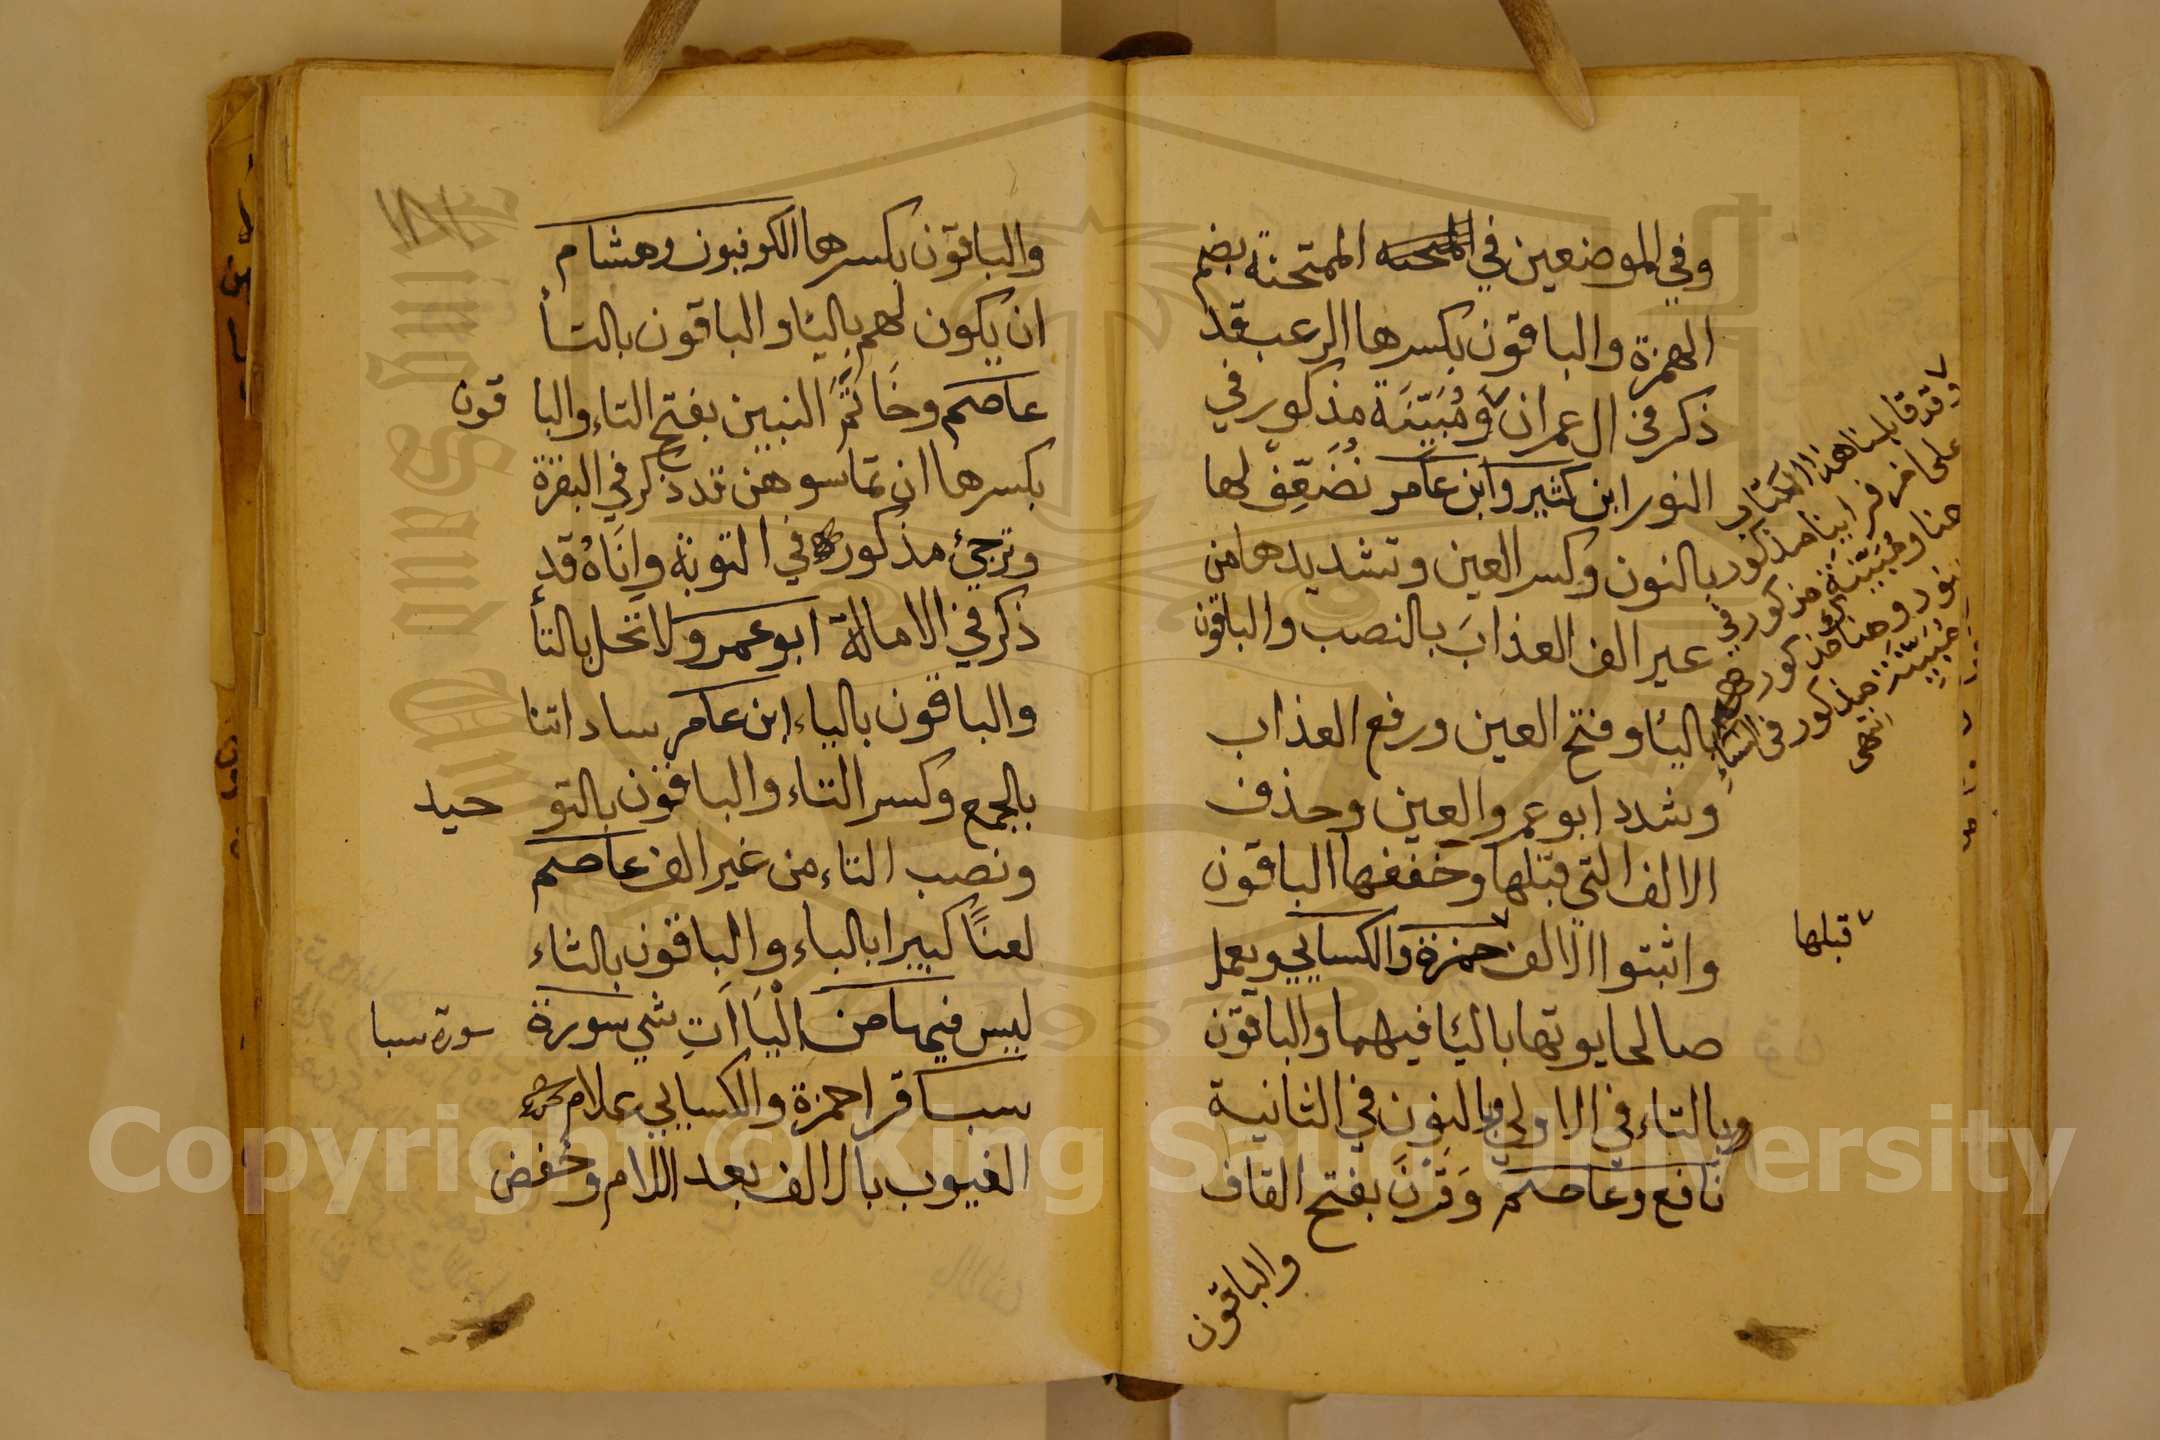 وفي الموضعين في الممتحنة بضم
الهمزة والباقون بكسرها الرعب قد
ذكر في ال عمران ومُبَيّنَة مذكور في
النور ابن كثير وابن عامر نُضَعِّفْ لها
بالنون وكسر العين وتشديدها من
غير الف العذابَ بالنصب والباقون
باليا وفتح العين ورفع العذاب
وشدد ابو عمرو العين وحذف
الالف التي قبلها وخففها الباقون
واثبتوا الالف حمزة والكسايي ويعمل
صالحا يوتها باليا فيهما والباقون
وبالتاء في الاولي وبالنون في الثانية
نافع وعاصم وَقَرْنَ بفتح القاف
والباقون
وقد قابلنا هذا الكتاب
على
هنا ومبينة مذكور في
نور وهنا مذكور
مبينة مذكور في النساء
انتهى
قبلها
١٨١
والباقون بكسرها الكوفيون وهشام
ان يكون لهم باليا والباقون بالتا
عاصم وخَاتَمَ النبيين بفتح التاء والبا قون
بكسرها ان تماسوهن قد ذكر في البقرة
وترجئ مذكور في التوبة وانَاهُ قد
ذكر في الامالة ابو عمرو لا تحل بالتا
والباقون بالياء ابن عامر ساداتنا
بالجمع وكسر التاء والباقون بالتو حيد
ونصب التاء من غير الف عاصم
لعنًا كبيرا بالباء والباقون بالثاء
ليس فيها من اليَاآتِ شي سورة
سورة سبا
سبا قرا حمزة والكسايي علام
الغيوب بالالف بعد اللام وخفض
Copyright © King Saud University
King Saud University
1957